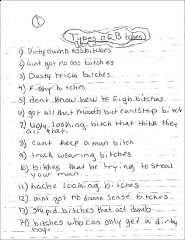 ①
Types of Bitches
1) Dirty dumb ass bitches
2) aint got no ass bitches
3) Dusty trick bitches
4) Fishy bitches
5) dont know how to fight bitches
6) get all that mouth but cant stop bitches
7) ugly looking bitch that think they
all that.
8) cant keep a man bitch
9) track wearing bitches
10) bitches that be trying to steal
your man.
11) hoche looking bitches
12) aint got no damn sense bitches
13) stupid bitches that act dumb
14) bitches who can only get a dirty
boy.